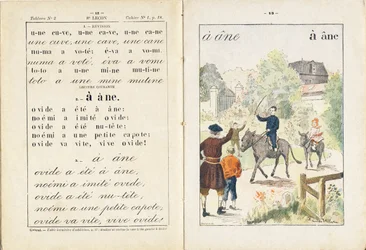 Tableau N° 2 — 42 — 9e LEÇON Cahier N° 1, p. 19.
A — RÉVISION
u-ne cu-ve, u-ne ca-ve, u-ne ca-ne
une cuve, une cave, une cane
nu-ma a vo-té; è-va a vo-mi
numa a voté, éva a vomi
to-to a u-ne mi-ne mu-ti-ne
toto a une mine mutine
LECTURE COURANTE
à âne.
o vi de a é té à â ne:
no é mi a i mi té o vi de:
o vi de a é té nu-tê te:
no é mi a u ne pe ti te ca po te:
o vi de va vi te, vi ve o vi de!
à âne
ovide a été à âne,
noémi a imité ovide,
ovide a été nu-tête,
noémi a une petite capote,
ovide va vite, vive ovide!
à âne
à âne